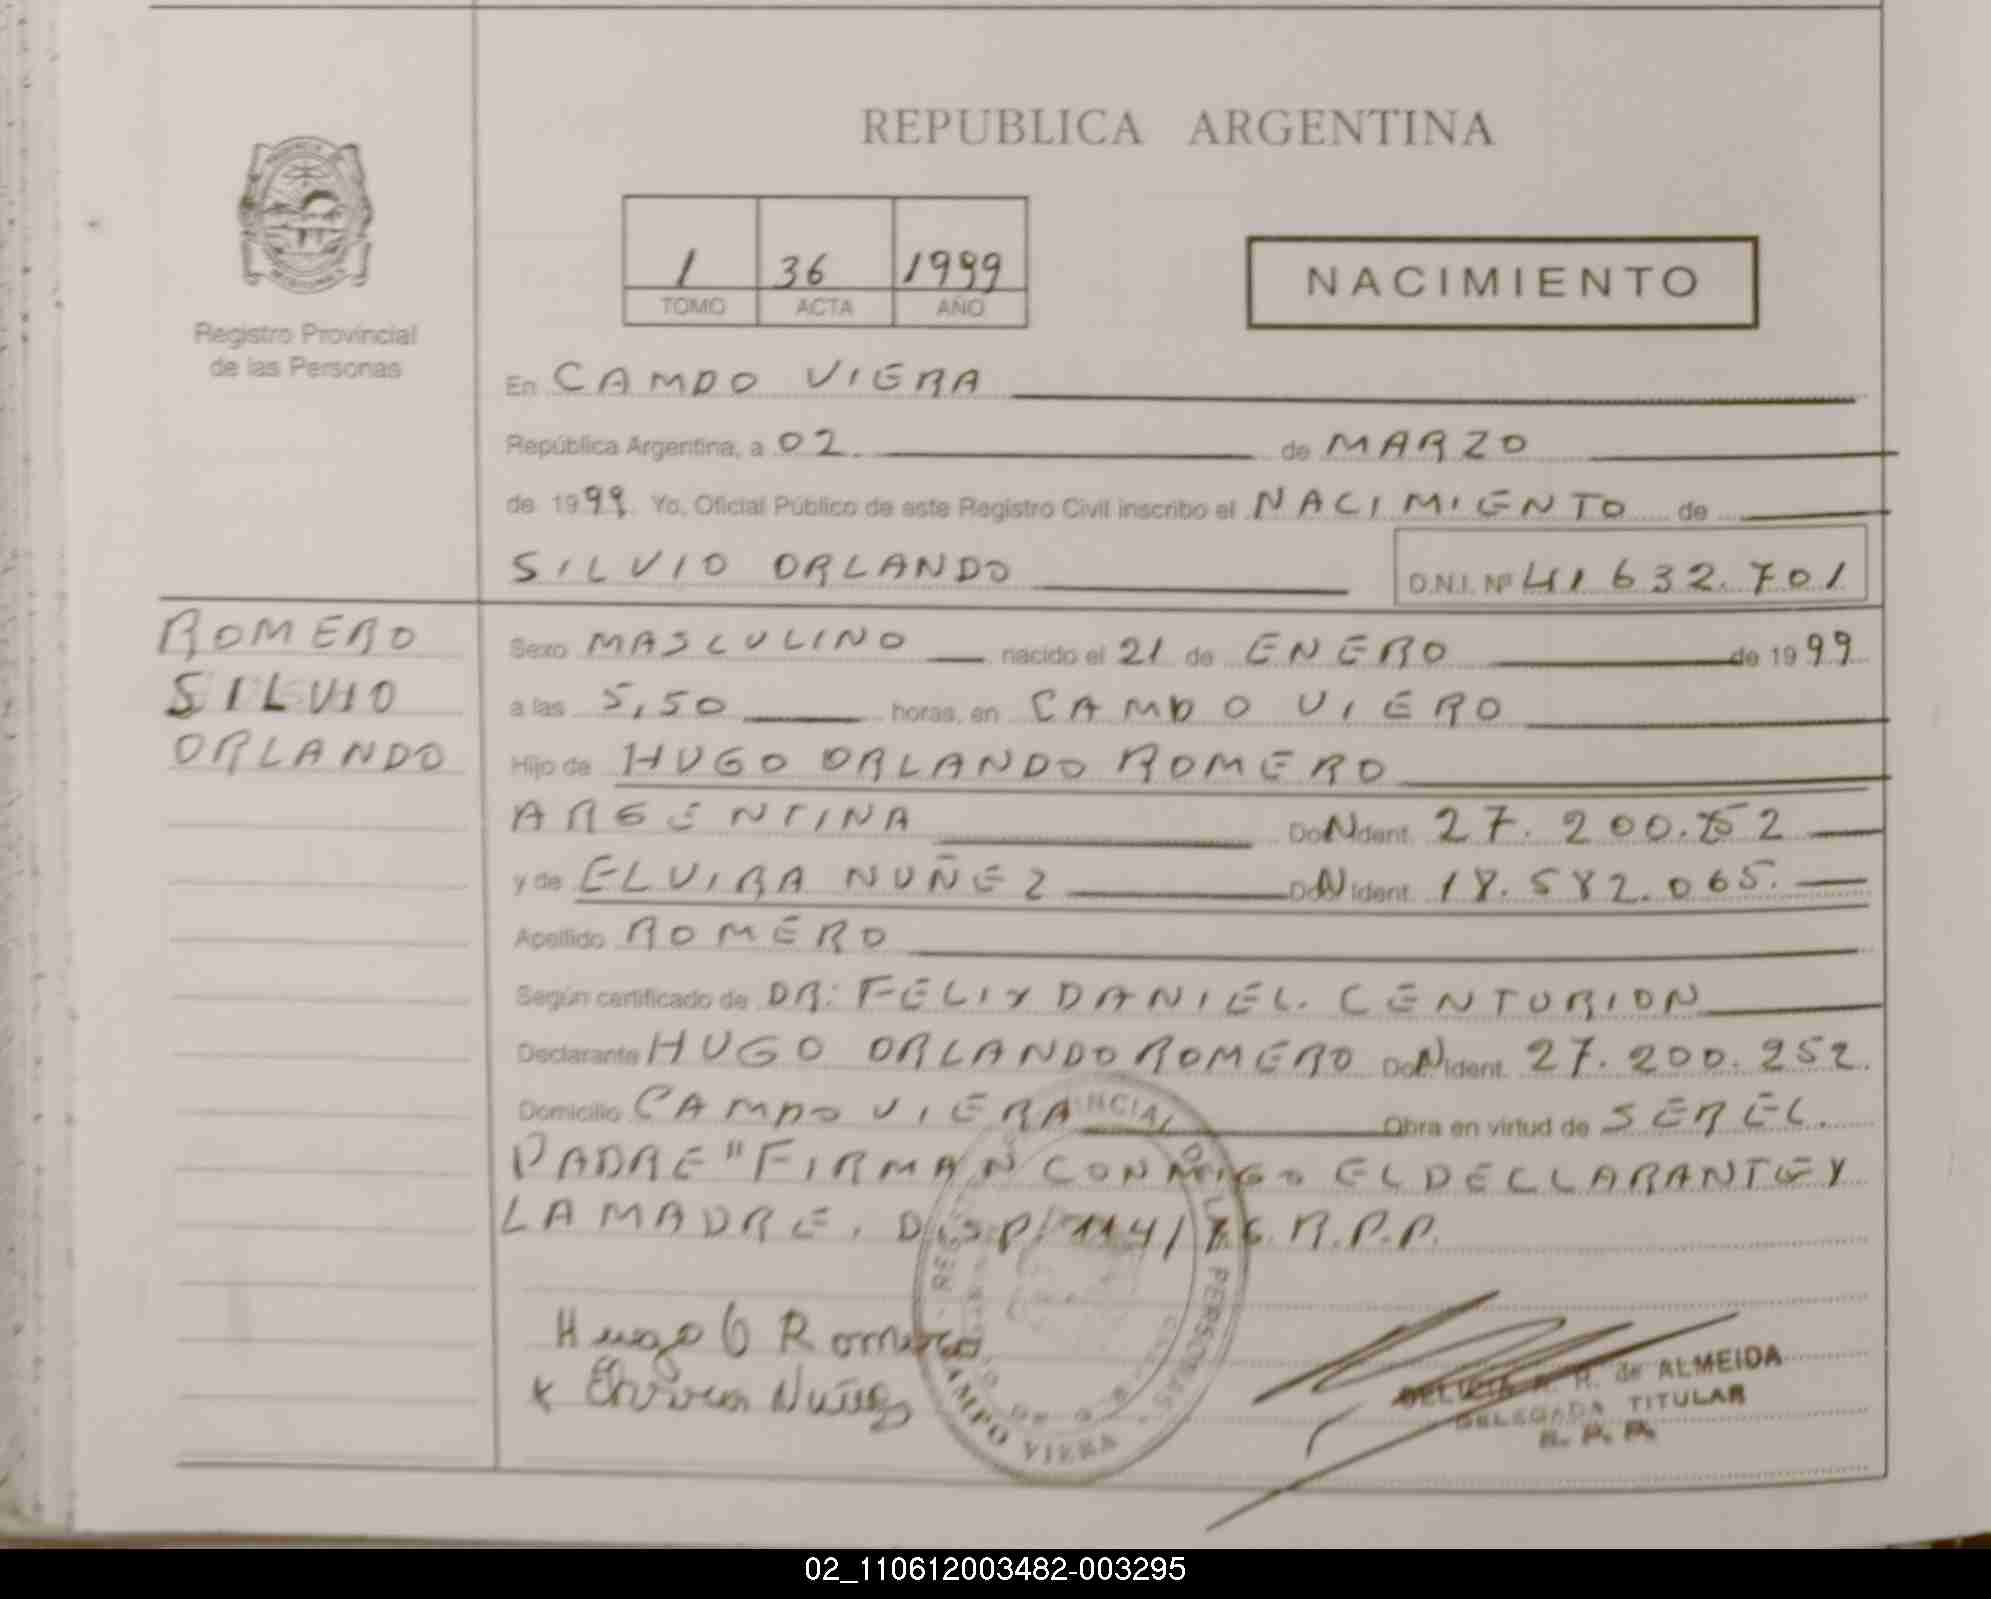 REPUBLICA ARGENTINA
Registro Provincial
de las Personas
1 36 1999
TOMO ACTA AÑO
NACIMIENTO
En CAMPO VIERA
República Argentina, a 02. de MARZO
de 1999. Yo, Oficial Público de este Registro Civil inscribo el NACIMIENTO de
SILVIO ORLANDO D.N.I. Nº 41 632.701
ROMERO
SILVIO
ORLANDO
Sexo MASCULINO nacido el 21 de ENERO de 1999
a las 5,50 horas, en CAMPO VIERO
Hijo de HUGO ORLANDO ROMERO
ARGENTINA Ident. 27.200.252
y de ELVIRA NUÑEZ Ident. 18.582.065.
Apellido ROMERO
Según certificado de DR: FELIX DANIEL. CENTURION
Declarante HUGO ORLANDO ROMERO Ident. 27.200.252.
Domicilio CAMPO VIERA Obra en virtud de SER EL.
PADRE" FIRMAN CONMIGO EL DECLARANTE Y
LA MADRE. DISP/114/ R.P.P.
Hugo O Romero
x Elvira Nuñez
CAMPO VIERA
DELICIA A. R. de ALMEIDA
DELEGADA TITULAR
R. P. P.
02_110612003482-003295